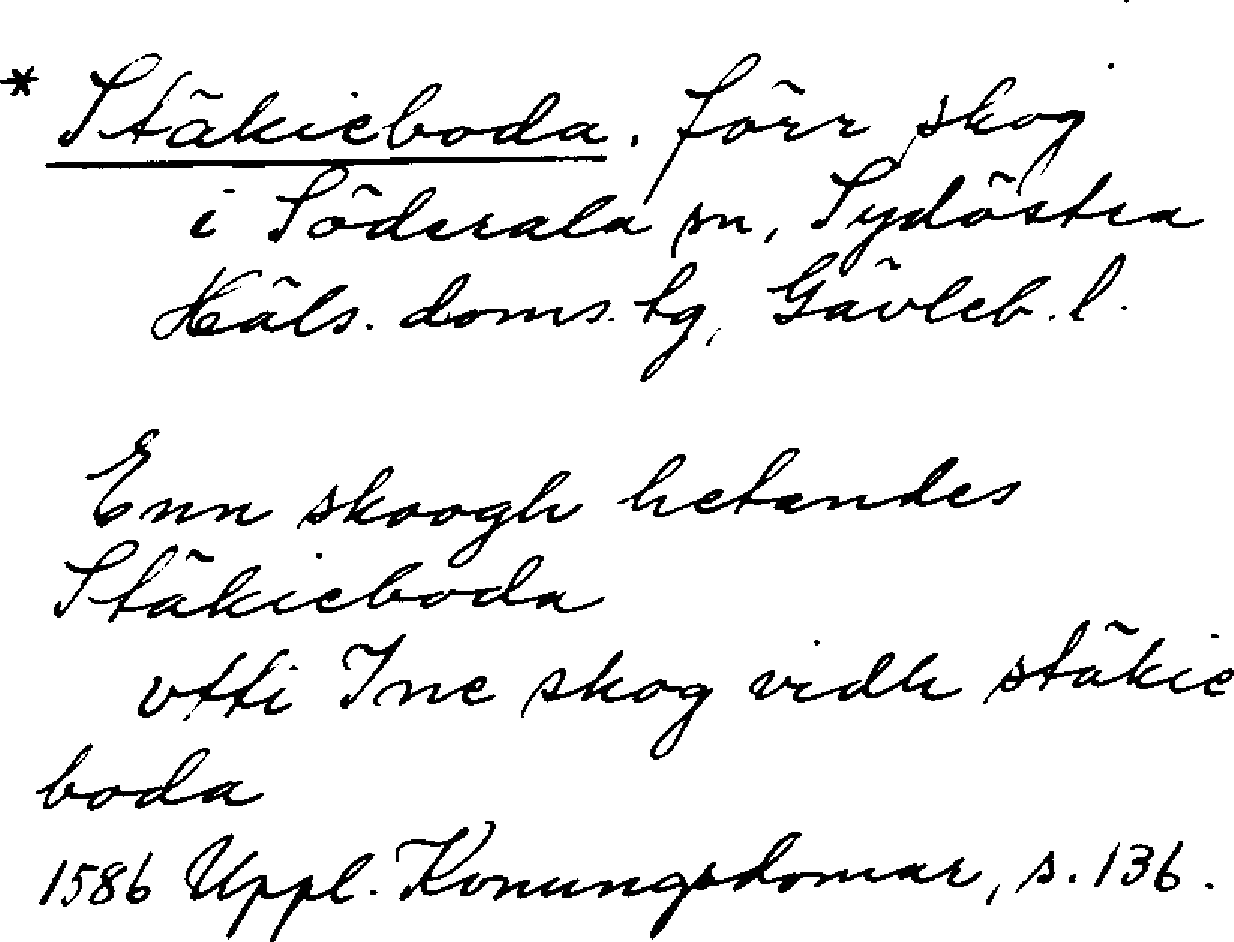 * Stäkieboda. förr skog
i Söderala sn, Sydöstra
Häls. doms. tg, Gävleb. l.
Enn skoogh hetandes
Stäkieboda
vtti Ine skog vidh stäkie
boda
1586 Uppl. Konungsdomar, s. 136.